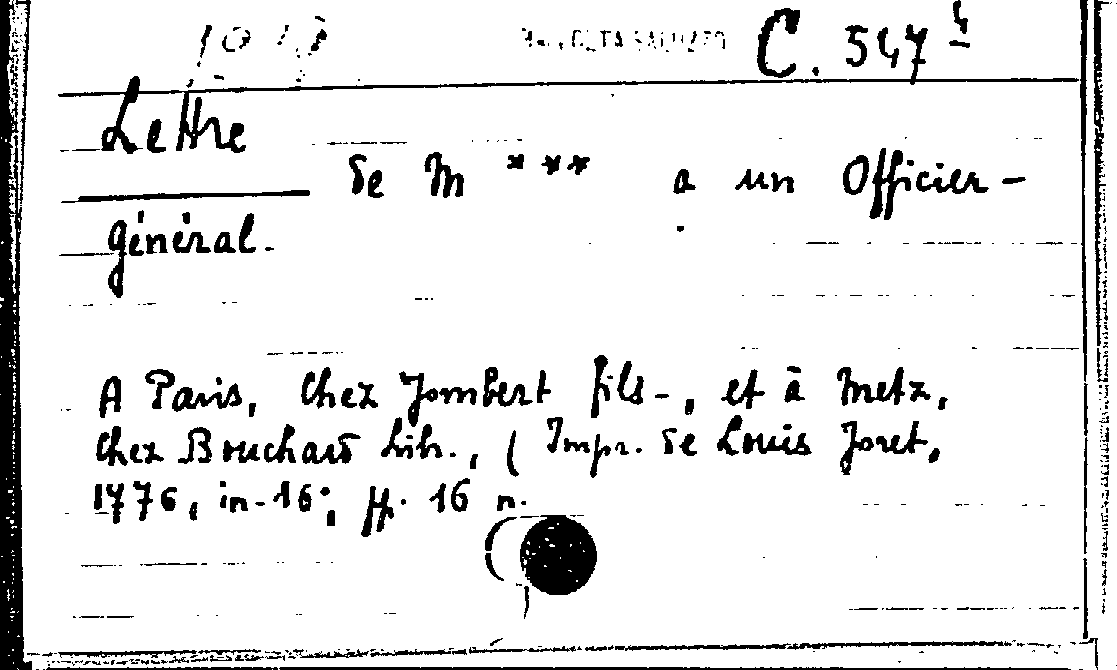 C. 547 4
Lettre
de M *** a un Officier-
général.
A Paris, Chez Jombert fils-, et à Metz,
Chez Bouchard Lib., ( Impr. de Louis Joret,
1776, in-16°, pp. 16 n.